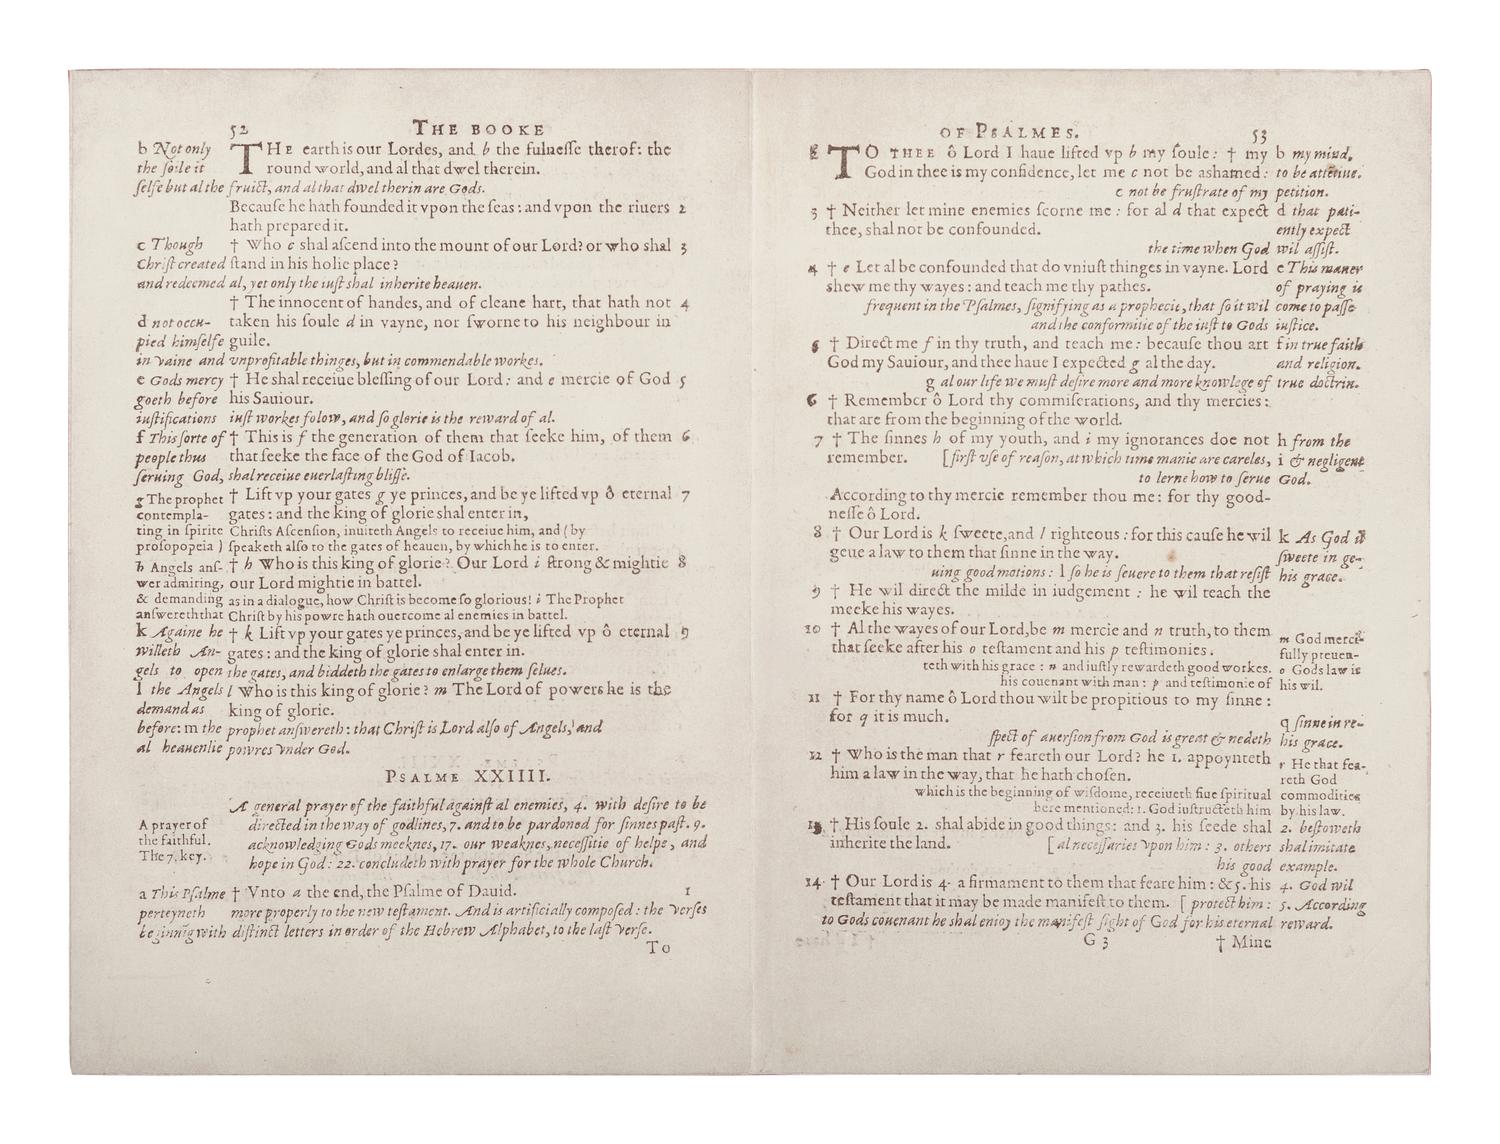 52 THE BOOKE
b Not only THE earth is our Lordes, and b the fulnesse therof: the
the soile it round world, and al that dwel therein.
selfe but al the fruict, and al that dwel therin are Gods.
Because he hath founded it vpon the seas: and vpon the riuers 2
hath prepared it.
c Though † Who c shal ascend into the mount of our Lord? or who shal 3
Christ created stand in his holie place?
and redeemed al, yet only the iust shal inherite heauen.
† The innocent of handes, and of cleane hart, that hath not 4
d not occu- taken his soule d in vayne, nor sworne to his neighbour in
pied himselfe guile.
in vaine and vnprofitable thinges, but in commendable workes.
e Gods mercy † He shal receiue blessing of our Lord: and e mercie of God 5
goeth before his Sauiour.
iustifications iust workes folow, and so glorie is the reward of al.
f This sorte of † This is f the generation of them that seeke him, of them 6
people thus that seeke the face of the God of Iacob.
seruing God, shal receiue euerlasting blisse.
g The prophet † Lift vp your gates g ye princes, and be ye lifted vp ô eternal 7
contempla- gates: and the king of glorie shal enter in,
ting in spirite Christs Ascension, inuiteth Angels to receiue him, and (by
prosopopeia) speaketh also to the gates of heauen, by which he is to enter.
h Angels ans- † h Who is this king of glorie? Our Lord i strong & mightie 8
wer admiring, our Lord mightie in battel.
& demanding as in a dialogue, how Christ is become so glorious! i The Prophet
answereth that Christ by his powre hath ouercome al enemies in battel.
k Againe he † k Lift vp your gates ye princes, and be ye lifted vp ô eternal 9
willeth An- gates: and the king of glorie shal enter in.
gels to open the gates, and biddeth the gates to enlarge them selues.
l the Angels l Who is this king of glorie? m The Lord of powers he is the
demand as king of glorie.
before: m the prophet answereth: that Christ is Lord also of Angels, and
al heauenlie powres vnder God.
PSALME XXIIII.
A general prayer of the faithful against al enemies, 4. with desire to be
A prayer of directed in the way of godlines, 7. and to be pardoned for sinnes past. 9.
the faithful. acknowledging Gods meeknes, 17. our weaknes, necessitie of helpe, and
The 7. key. hope in God: 22. concludeth with prayer for the whole Church.
a This Psalme † Vnto a the end, the Psalme of Dauid. 1
perteyneth more properly to the new testament. And is artificially composed: the verses
beginnig with distinct letters in order of the Hebrew Alphabet, to the last verse.
To
OF PSALMES. 53
TO THEE ô Lord I haue lifted vp b my soule: † my b my mind,
God in thee is my confidence, let me c not be ashamed: to be attetiue.
c not be frustrate of my petition.
3 † Neither let mine enemies scorne me: for al d that expect d that pati-
thee, shal not be confounded. ently expect
the time when God wil assist.
4 † e Let al be confounded that do vniust thinges in vayne. Lord e This maner
shew me thy wayes: and teach me thy pathes. of praying is
frequent in the Psalmes, signifying as a prophecie, that so it wil come to passe
and the conformitie of the iust to Gods iustice.
5 † Direct me f in thy truth, and teach me: because thou art f in true faith
God my Sauiour, and thee haue I expected g al the day. and religion.
g al our life we must desire more and more knowlege of true doctrin.
6 † Remember ô Lord thy commiserations, and thy mercies:
that are from the beginning of the world.
7 † The sinnes h of my youth, and i my ignorances doe not h from the
remember. [first vse of reason, at which time manie are careles, i & negligent
to lerne how to serue God.
According to thy mercie remember thou me: for thy good-
nesse ô Lord.
8 † Our Lord is k sweete, and l righteous: for this cause he wil k As God is
geue a law to them that sinne in the way. sweete in ge-
uing good motions: l so he is seuere to them that resist his grace.
9 † He wil direct the milde in iudgement: he wil teach the
meeke his wayes.
10 † Al the wayes of our Lord, be m mercie and n truth, to them m God merci-
that seeke after his o testament and his p testimonies. fully preuen-
teth with his grace: n and iustly rewardeth good workes. o Gods law is
his couenant with man: p and testimonie of his wil.
11 † For thy name ô Lord thou wilt be propitious to my sinne:
for q it is much. q sinne in re-
spect of auersion from God is great & nedeth his grace.
12 † Who is the man that r feareth our Lord? he 1. appoynteth r He that fea-
him a law in the way, that he hath chosen. reth God
which is the beginning of wisdome, receiueth fiue spiritual commodities
here mentioned: 1. God instructeth him by his law.
13 † His soule 2. shal abide in good things: and 3. his seede shal 2. bestoweth
inherite the land. [al necessaries vpon him: 3. others shal imitate
his good example.
14 † Our Lord is 4. a firmament to them that feare him: & 5. his 4. God wil
testament that it may be made manifest to them. [protect him: 5. According
to Gods couenant he shal enioy the manifest sight of God for his eternal reward.
G 3 † Mine